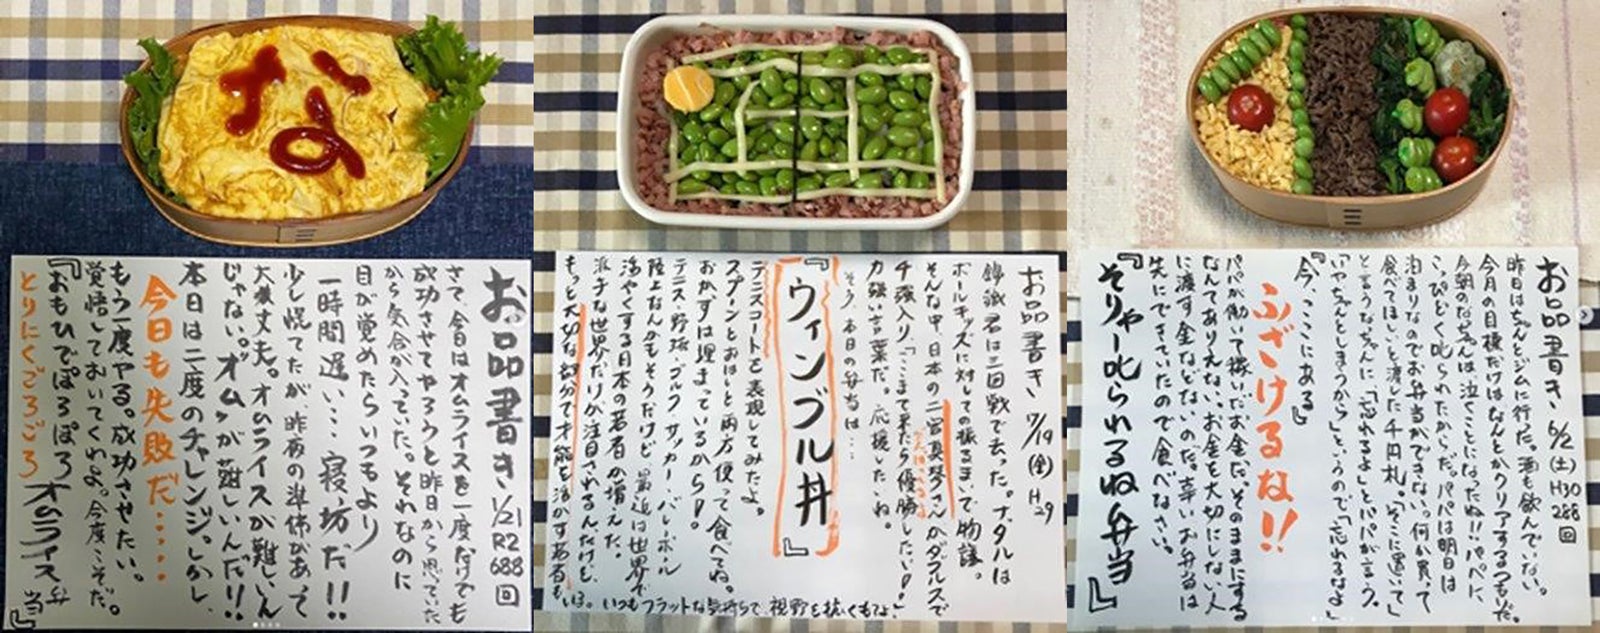 なな
お品書き 1/21 R2 688回
さて、今日はオムライスを一度だけでも
成功させてやろうと昨日から思っていた
から気合が入っていた。それなのに
目が覚めたらいつもより
一時間遅い…寝坊だ!!
少し慌てたが昨夜の準備があって
大丈夫。オムライスが難しいん
じゃない。"オム"が難しいんだ!!
本日は二度のチャレンジ。しかし、
今日も失敗だ……
もう一度やる。成功させたい。
覚悟しておいてくれよ。今度こそだ。
『おもひでぽろぽろオムライス弁当』
とりにくごろごろ
お品書き 7/19(金) H29
錦織君は三回戦で去った。ナダルは
ボールキッズに対しての振るまいで物議。
そんな中、日本の二宮真琴さんがダブルスで
4強入り。「ここまで来たら優勝したい!」
力強い言葉だ。応援したいね。
そう、本日の弁当は…
『ウィンブル丼』
テニスコートを表現してみたよ。
スプーンとおはしと両方使って食べてね。
おかずは埋まっているから!
テニス、野球、ゴルフ、サッカー、バレーボール
陸上なんかもそうだけど、最近は世界で
活やくする日本の若者が増えた。
派手な世界だけが注目されるんだけど、
もっと大切な部分で才能を活かす若者もいる。
いつもフラットな気持ちで、視野を拡くもてよ!
お品書き 6/2(土) H30 288回
昨日はちゃんとジムに行った。酒も飲んでいない。
今月の目標だけはなんとかクリアするつもりだ。
今朝のなーちゃんは泣くことになったね!!パパに、
こっぴどく叱られたからだ。パパは明日は
泊まりなのでお弁当ができない。何か買って
食べてほしいと渡した千円札。「そこに置いて」
と言うなーちゃんに、「忘れるよ」とパパが言う。
「いやちゃんとしまうから」というので「忘れるなよ」
今、ここにある』
ふざけるな!!
パパが働いて稼いだお金だ。そのままにする
なんてありえない。お金を大切にしない人
に渡す金などないのだ。辛いお弁当は
先にできていたので食べなさい。
『そりゃー叱られるね弁当』